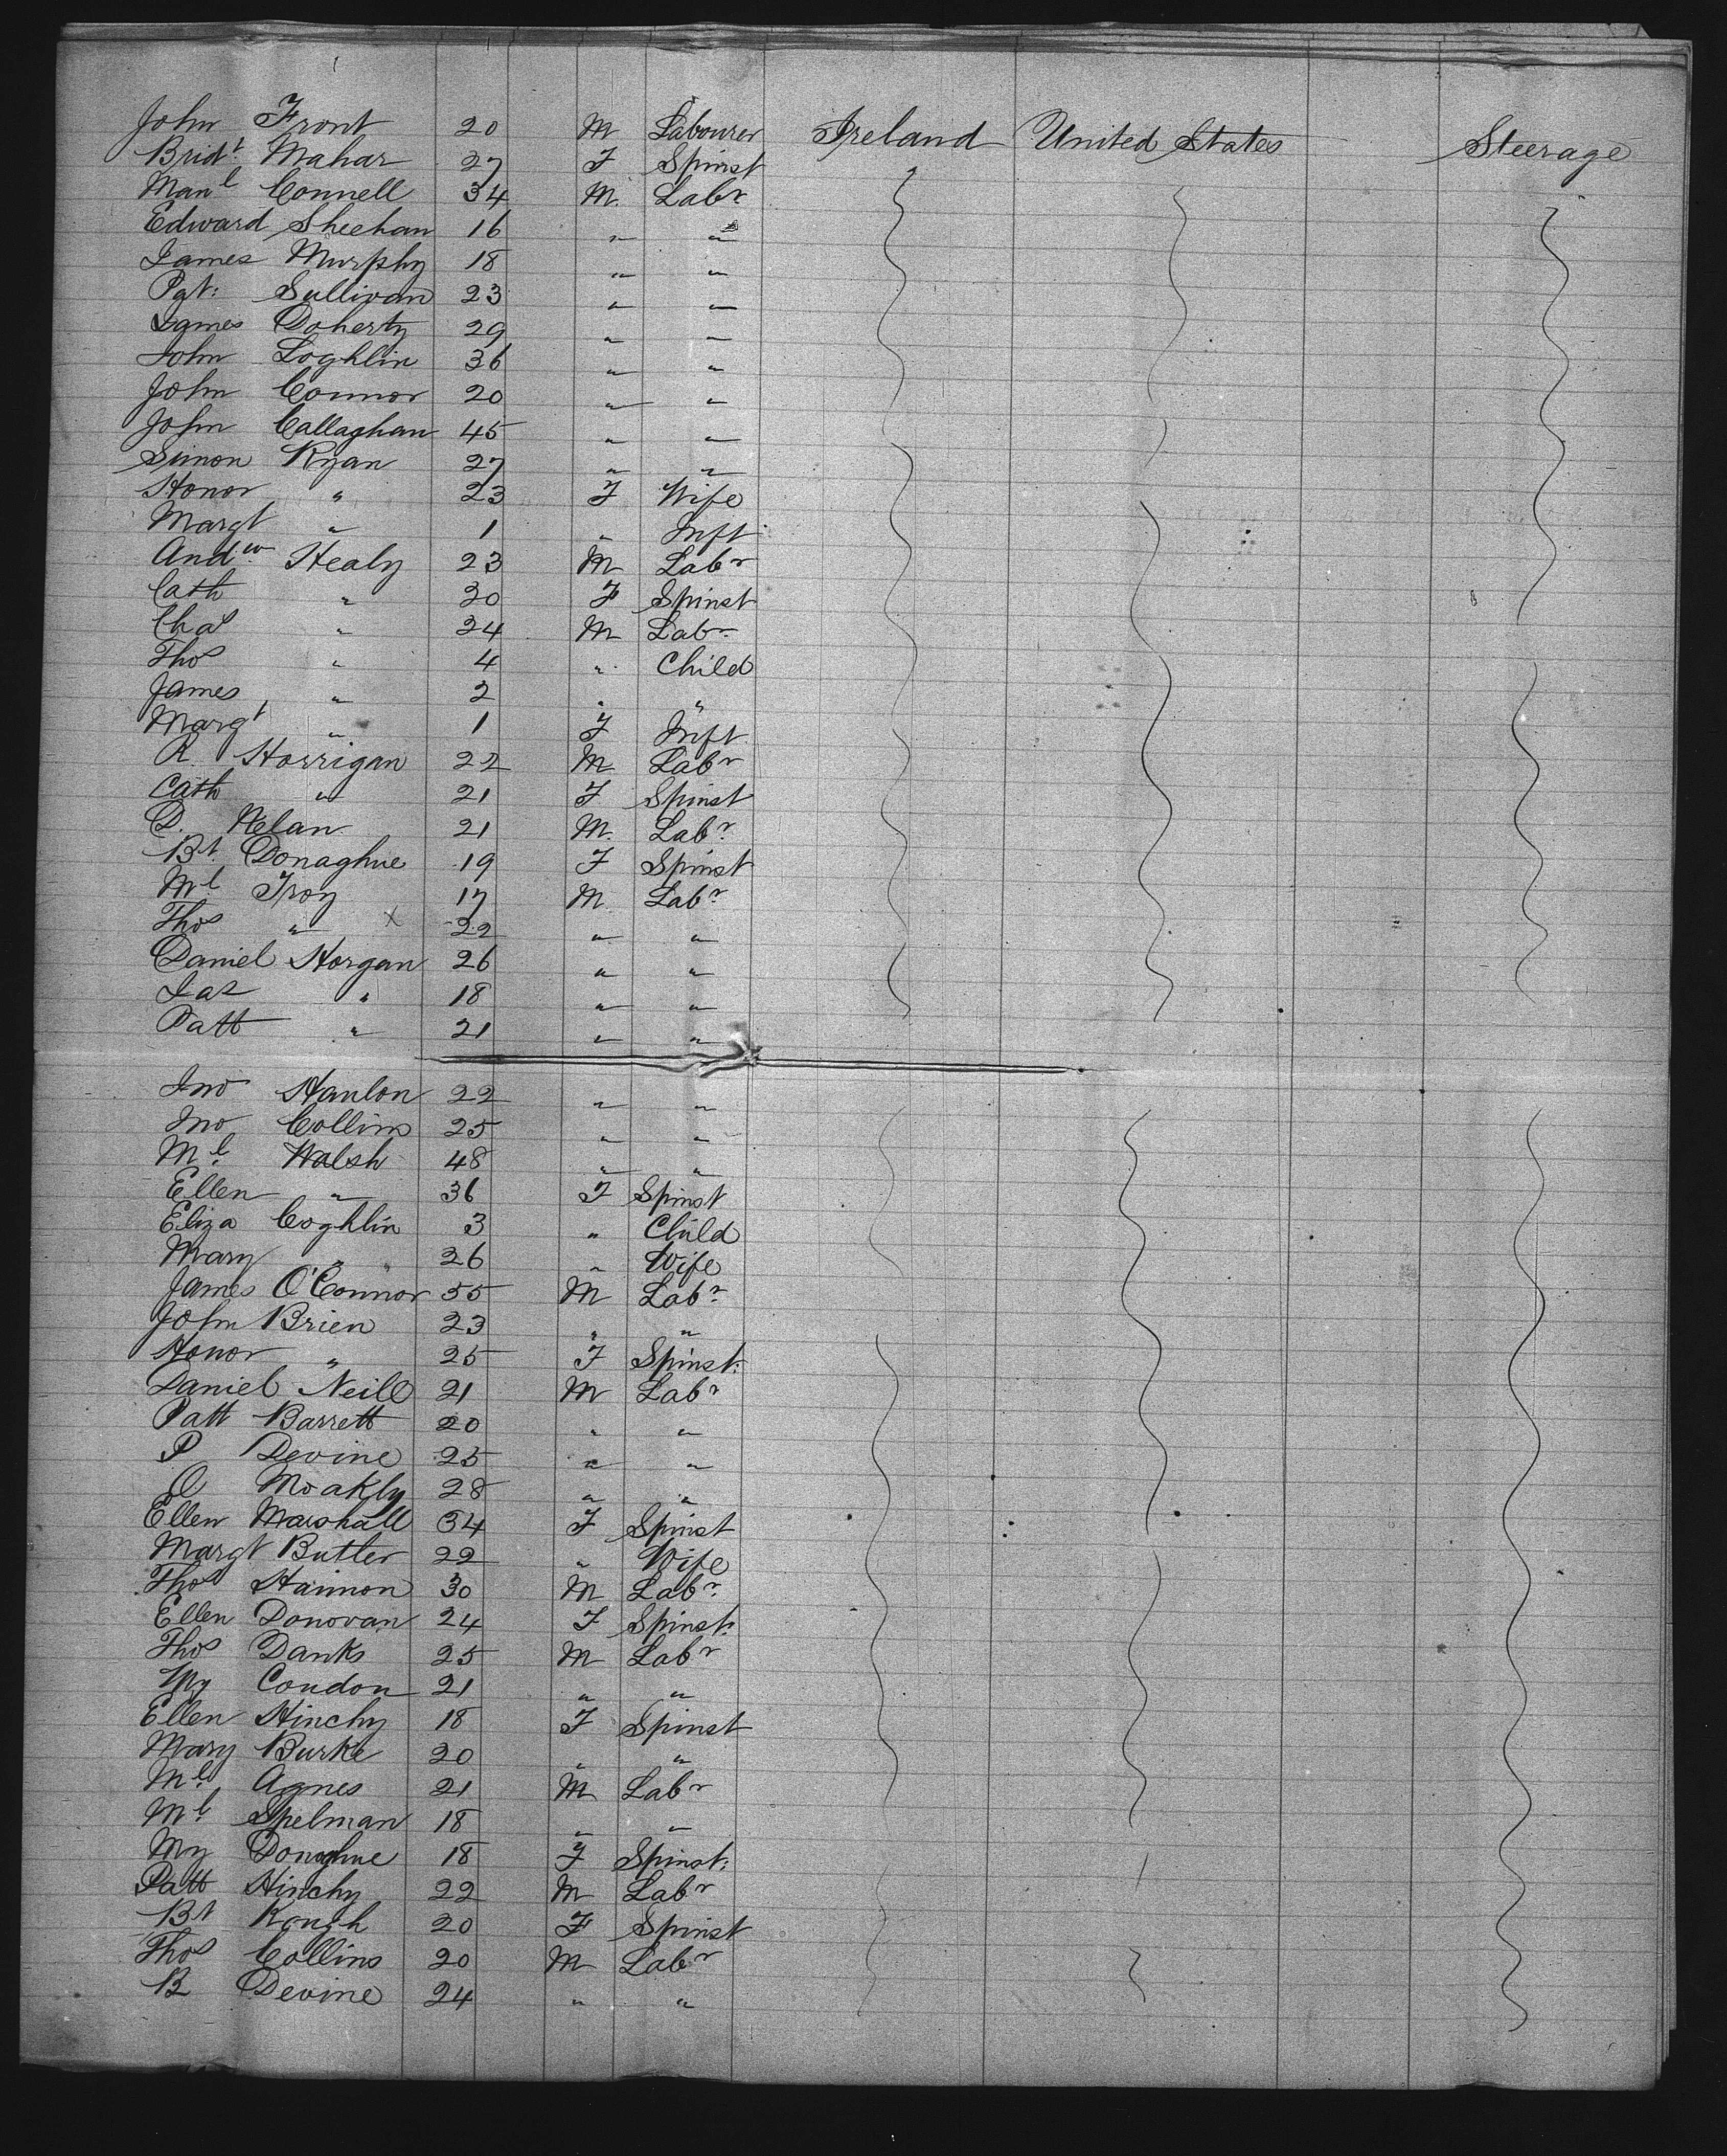 John Front 20 M Labourer Ireland United States Steerage
Bridt. Mahar 27 F Spinst
Manl Connell 34 M. Labr
Edward Sheehan 16 " "
James Murphy 18 " "
Pat: Sullivan 23 " "
James Doherty 29 " "
John Loghlin 36 " "
John Connor 20 " "
John Callaghan 45 " "
Simon Ryan 27 " "
Honor " 23 F Wife
Margt " 1 " Inft
Andw. Healy 23 M Labr
Cath " 30 F Spinst
Chas " 24 M Labr
Thos " 4 " Child
James " 2 " "
Margt " 1 F Inft
R. Horrigan 22 M Labr
Cath " 21 F Spinst
D. Nelan 21 M. Labr.
Bt. Donaghue 19 F Spinst
Ml Troy 17 M Labr.
Thos " X 22 " "
Daniel Horgan 26 " "
Jas " 18 " "
Patt " 21 " "
Jno Hanlon 22 " "
Jno Collins 25 " "
Ml. Walsh 48 " "
Ellen " 36 F Spinst
Eliza Coghlin 3 " Child
Mary " 26 " Wife
James O'Connor 55 M Labr
John Brien 23 " "
Honor " 25 F Spinst:
Daniel Neill 21 M Labr
Patt Barrett 20 " "
P Devine 25 " "
O Moakly 28 " "
Ellen Marshall 34 F Spinst
Margt Butler 22 " Wife
Thos Hannon 30 M Labr.
Ellen Donovan 24 F Spinst.
Thos Danks 25 M Labr
My Condon 21 " "
Ellen Hinchy 18 F Spinst
Mary Burke 20 " "
Ml. Agnes 21 M Labr
Ml. Spelman 18 " "
My Donoghue 18 F Spinst:
Patt Hinchy 22 M Labr
Bt Keough 20 F Spinst
Thos Collins 20 M Labr
B Devine 24 " "